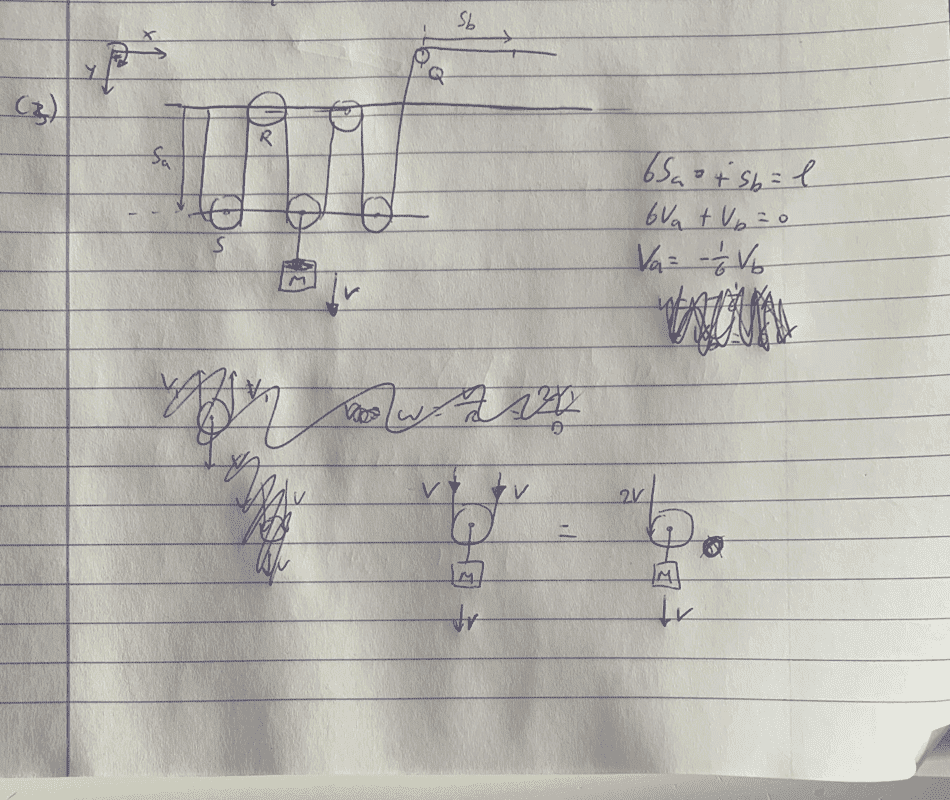 S_b
x
y
Q
(3)
R
S_a
6S_a + S_b = l
6V_a + V_b = 0
S
V_a = -1/6 V_b
M
V
V
V
ω =
V
V
2V
=
M
M
V
V